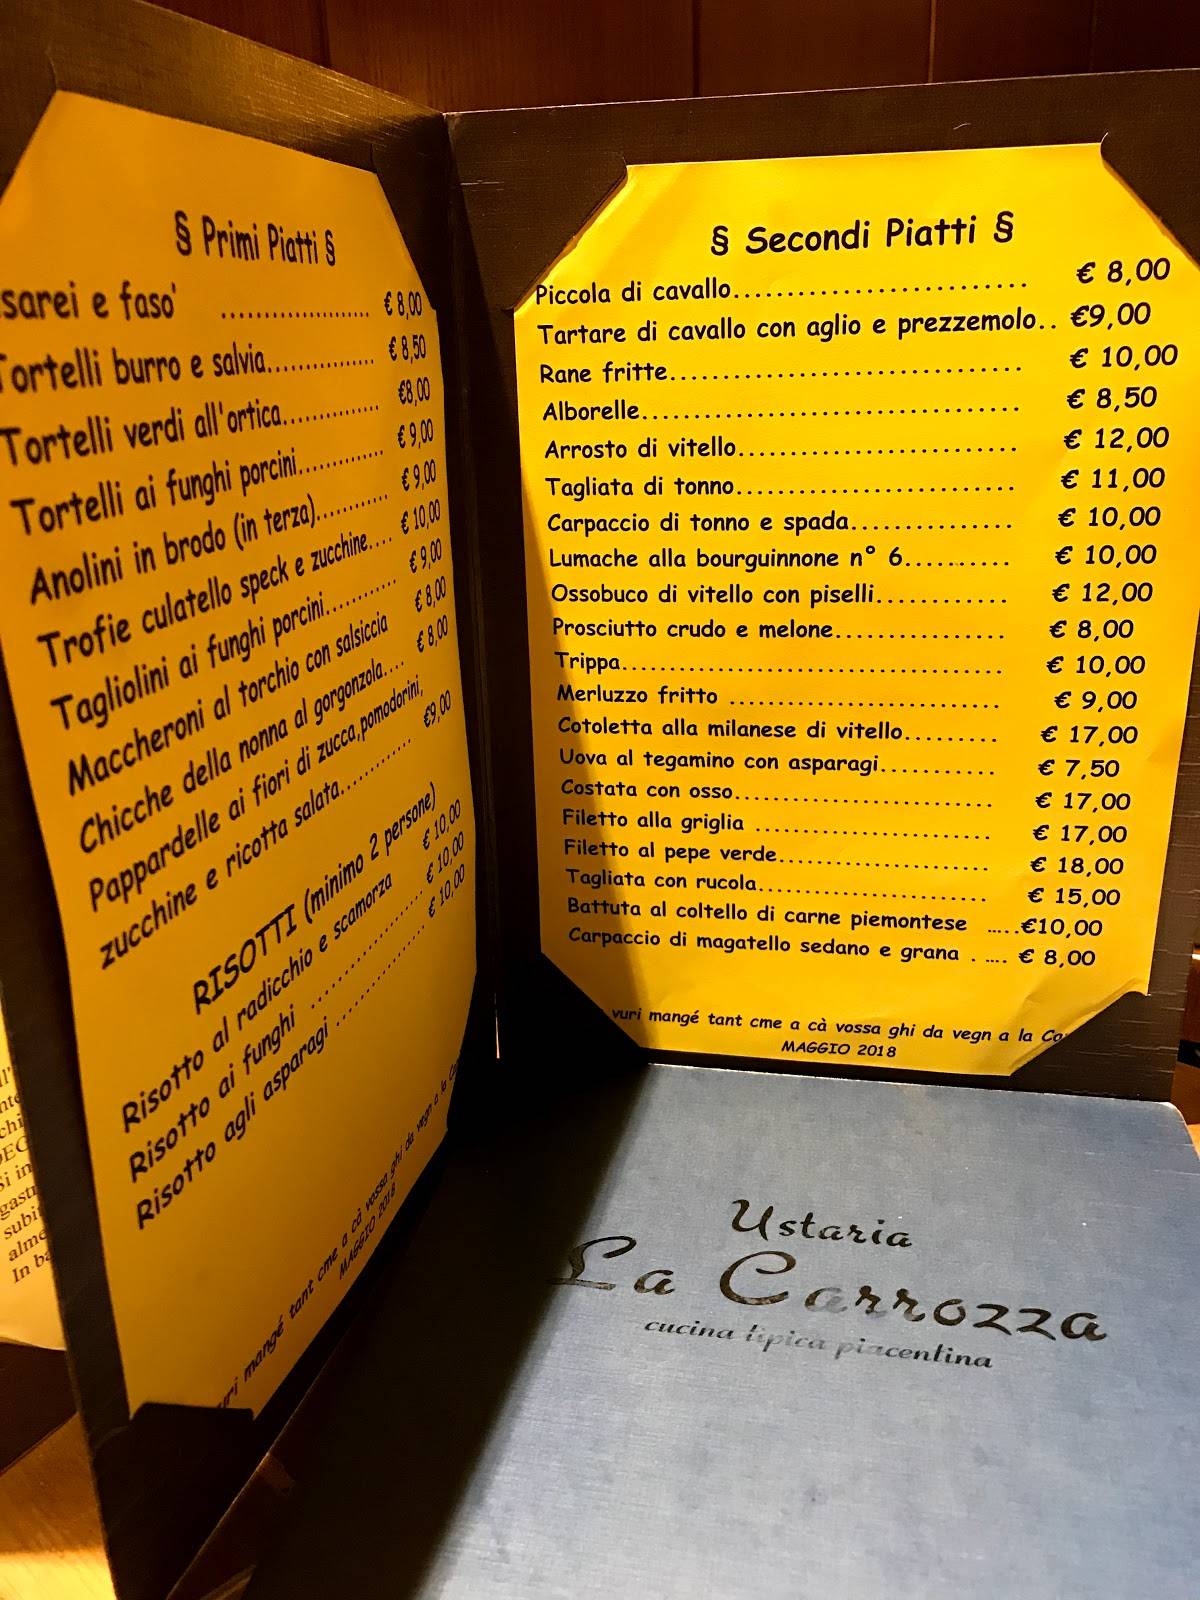 § Primi Piatti §
sarei e faso' ..................... € 8,00
Tortelli burro e salvia............... € 8,50
Tortelli verdi all'ortica.............. €8,00
Tortelli ai funghi porcini.............. € 9,00
Anolini in brodo (in terza)........... € 9,00
Trofie culatello speck e zucchine.... € 10,00
Tagliolini ai funghi porcini........... € 9,00
Maccheroni al torchio con salsiccia € 8,00
Chicche della nonna al gorgonzola.... € 8,00
Pappardelle ai fiori di zucca,pomodorini,
zucchine e ricotta salata............ €9,00
RISOTTI (minimo 2 persone)
Risotto al radicchio e scamorza € 10,00
Risotto ai funghi ................. € 10,00
Risotto agli asparagi .................. € 10,00
vuri mangé tant cme a cà vossa ghi da vegn a la Ca
MAGGIO 2018
§ Secondi Piatti §
Piccola di cavallo............................ € 8,00
Tartare di cavallo con aglio e prezzemolo.. €9,00
Rane fritte................................. € 10,00
Alborelle.................................... € 8,50
Arrosto di vitello........................... € 12,00
Tagliata di tonno........................... € 11,00
Carpaccio di tonno e spada............... € 10,00
Lumache alla bourguinnone n° 6.......... € 10,00
Ossobuco di vitello con piselli............ € 12,00
Prosciutto crudo e melone................ € 8,00
Trippa..................................... € 10,00
Merluzzo fritto .......................... € 9,00
Cotoletta alla milanese di vitello......... € 17,00
Uova al tegamino con asparagi........... € 7,50
Costata con osso......................... € 17,00
Filetto alla griglia ....................... € 17,00
Filetto al pepe verde..................... € 18,00
Tagliata con rucola....................... € 15,00
Battuta al coltello di carne piemontese .....€10,00
Carpaccio di magatello sedano e grana . .... € 8,00
vuri mangé tant cme a cà vossa ghi da vegn a la Ca
MAGGIO 2018
Ustaria
La Carrozza
cucina tipica piacentina